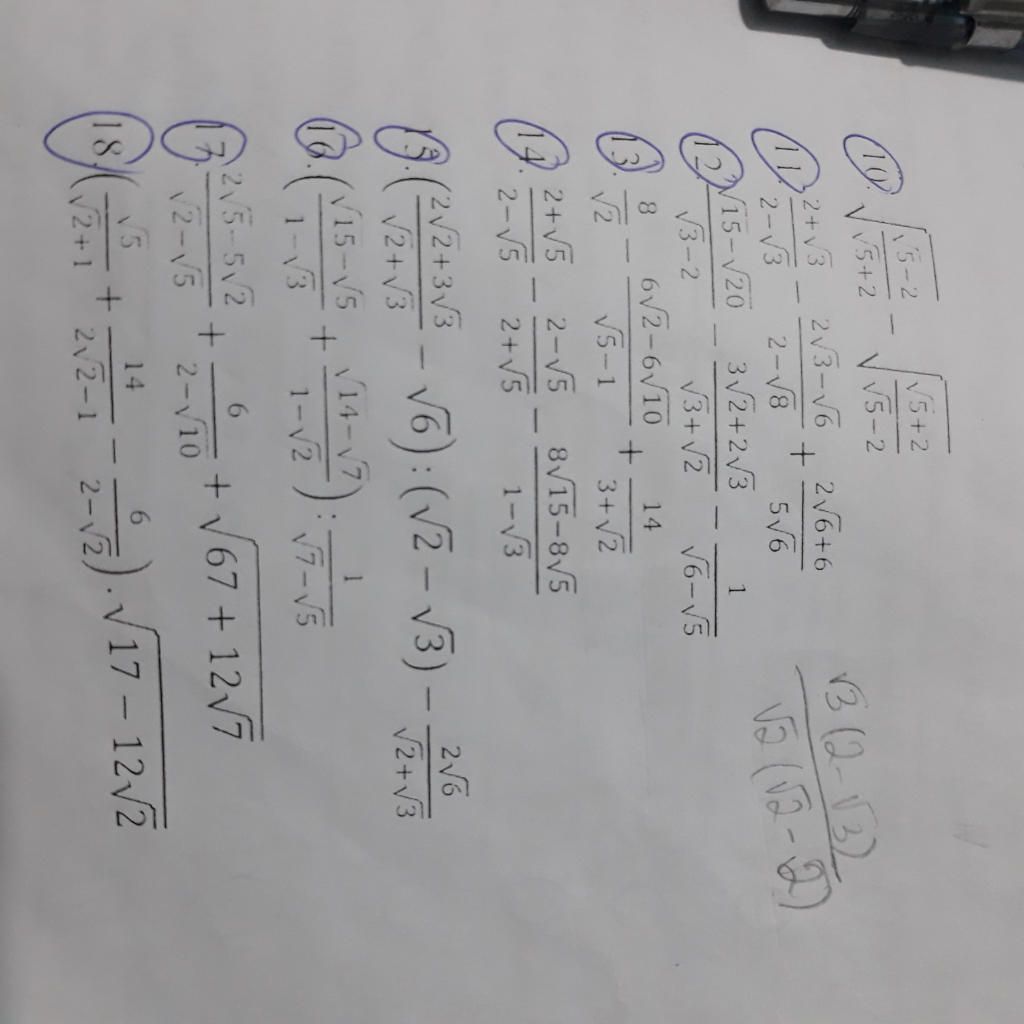 10. √((√5−2)/(√5+2)) − √((√5+2)/(√5−2))
11. (2+√3)/(2−√3) − (2√3−√6)/(2−√8) + (2√6+6)/(5√6)
12. (√15−√20)/(√3−2) − (3√2+2√3)/(√3+√2) − 1/(√6−√5)
13. 8/√2 − (6√2−6√10)/(√5−1) + 14/(3+√2)
14. (2+√5)/(2−√5) − (2−√5)/(2+√5) − (8√15−8√5)/(1−√3)
15. ((2√2+3√3)/(√2+√3) − √6) : (√2 − √3) − 2√6/(√2+√3)
16. ((√15−√5)/(1−√3) + (√14−√7)/(1−√2)) : 1/(√7−√5)
17. (2√5−5√2)/(√2−√5) + 6/(2−√10) + √(67 + 12√7)
18. (√5/(√2+1) + 14/(2√2−1) − 6/(2−√2)) . √(17 − 12√2)
√3 (2 - √3)/√2 (√2 - 2)